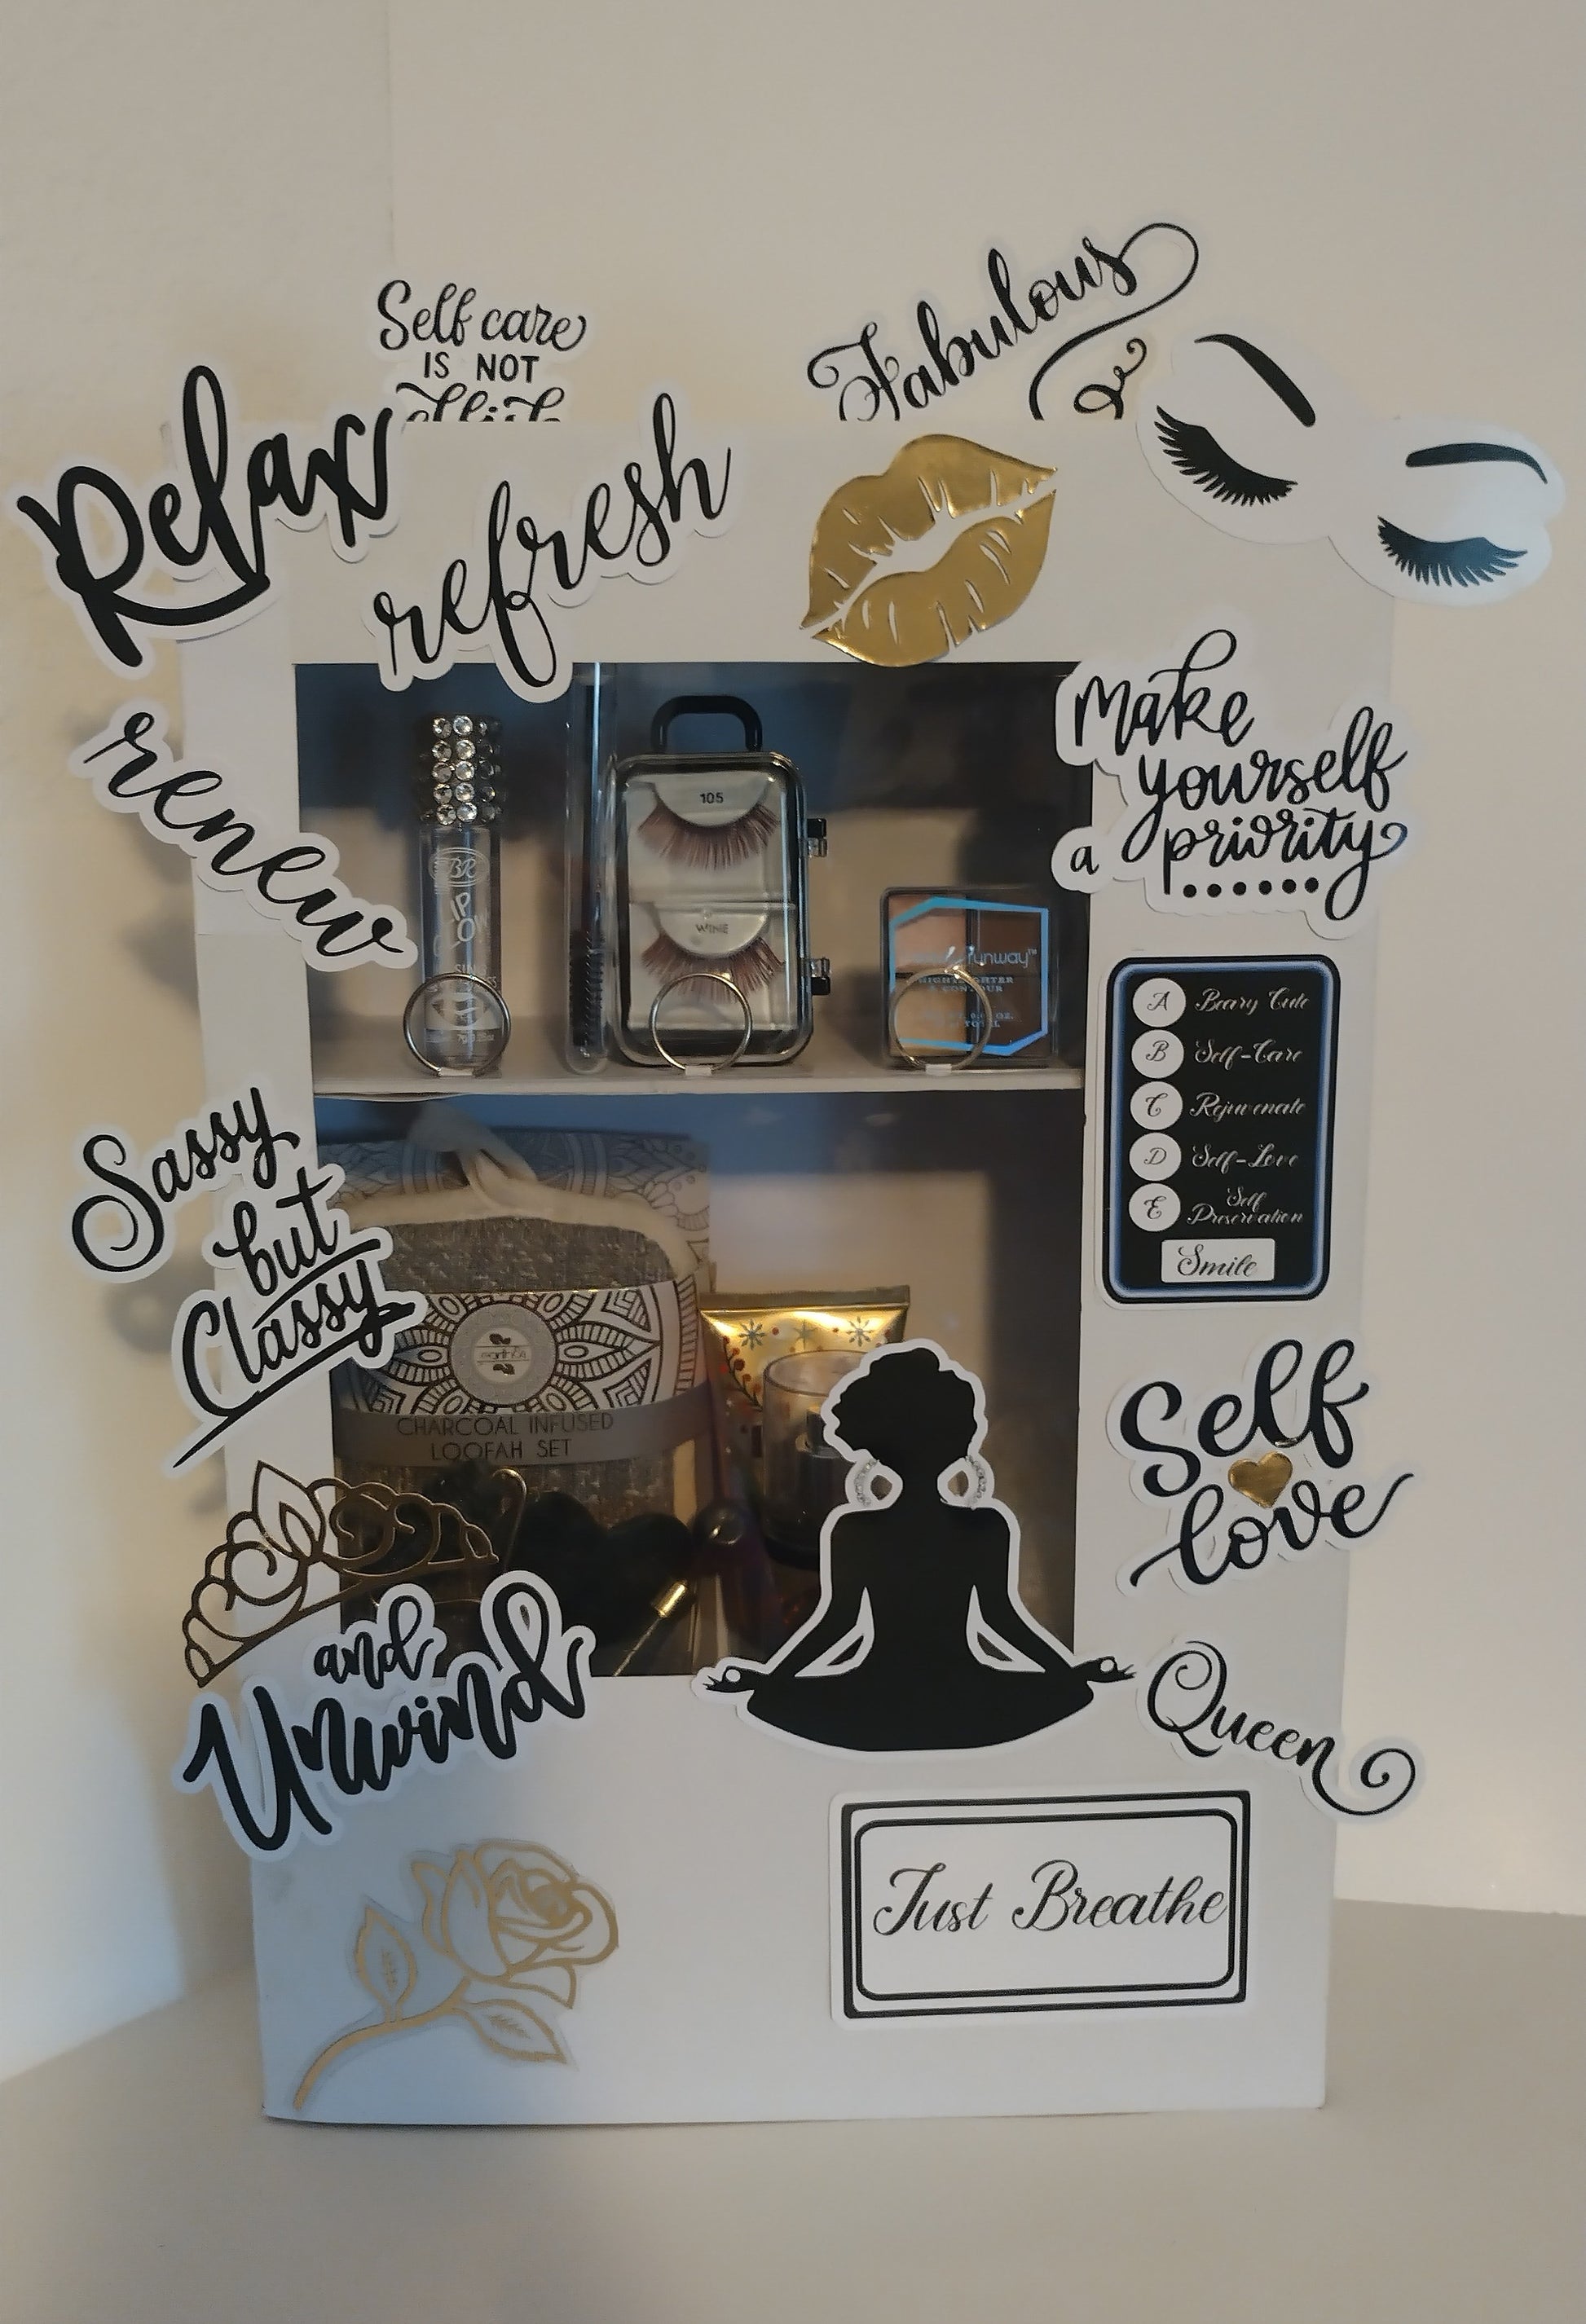 Self care
IS NOT
Fabulous
Relax
refresh
renew
Make
yourself
a priority
105
WINIE
BR
runway™
HIGHLIGHTER
& CONTOUR
A Beary Cute
B Self-Care
C Rejuvenate
D Self-Love
E Self
Preservation
Smile
Sassy
but
Classy
CHARCOAL INFUSED
LOOFAH SET
Self
love
and
Unwind
Queen
Just Breathe